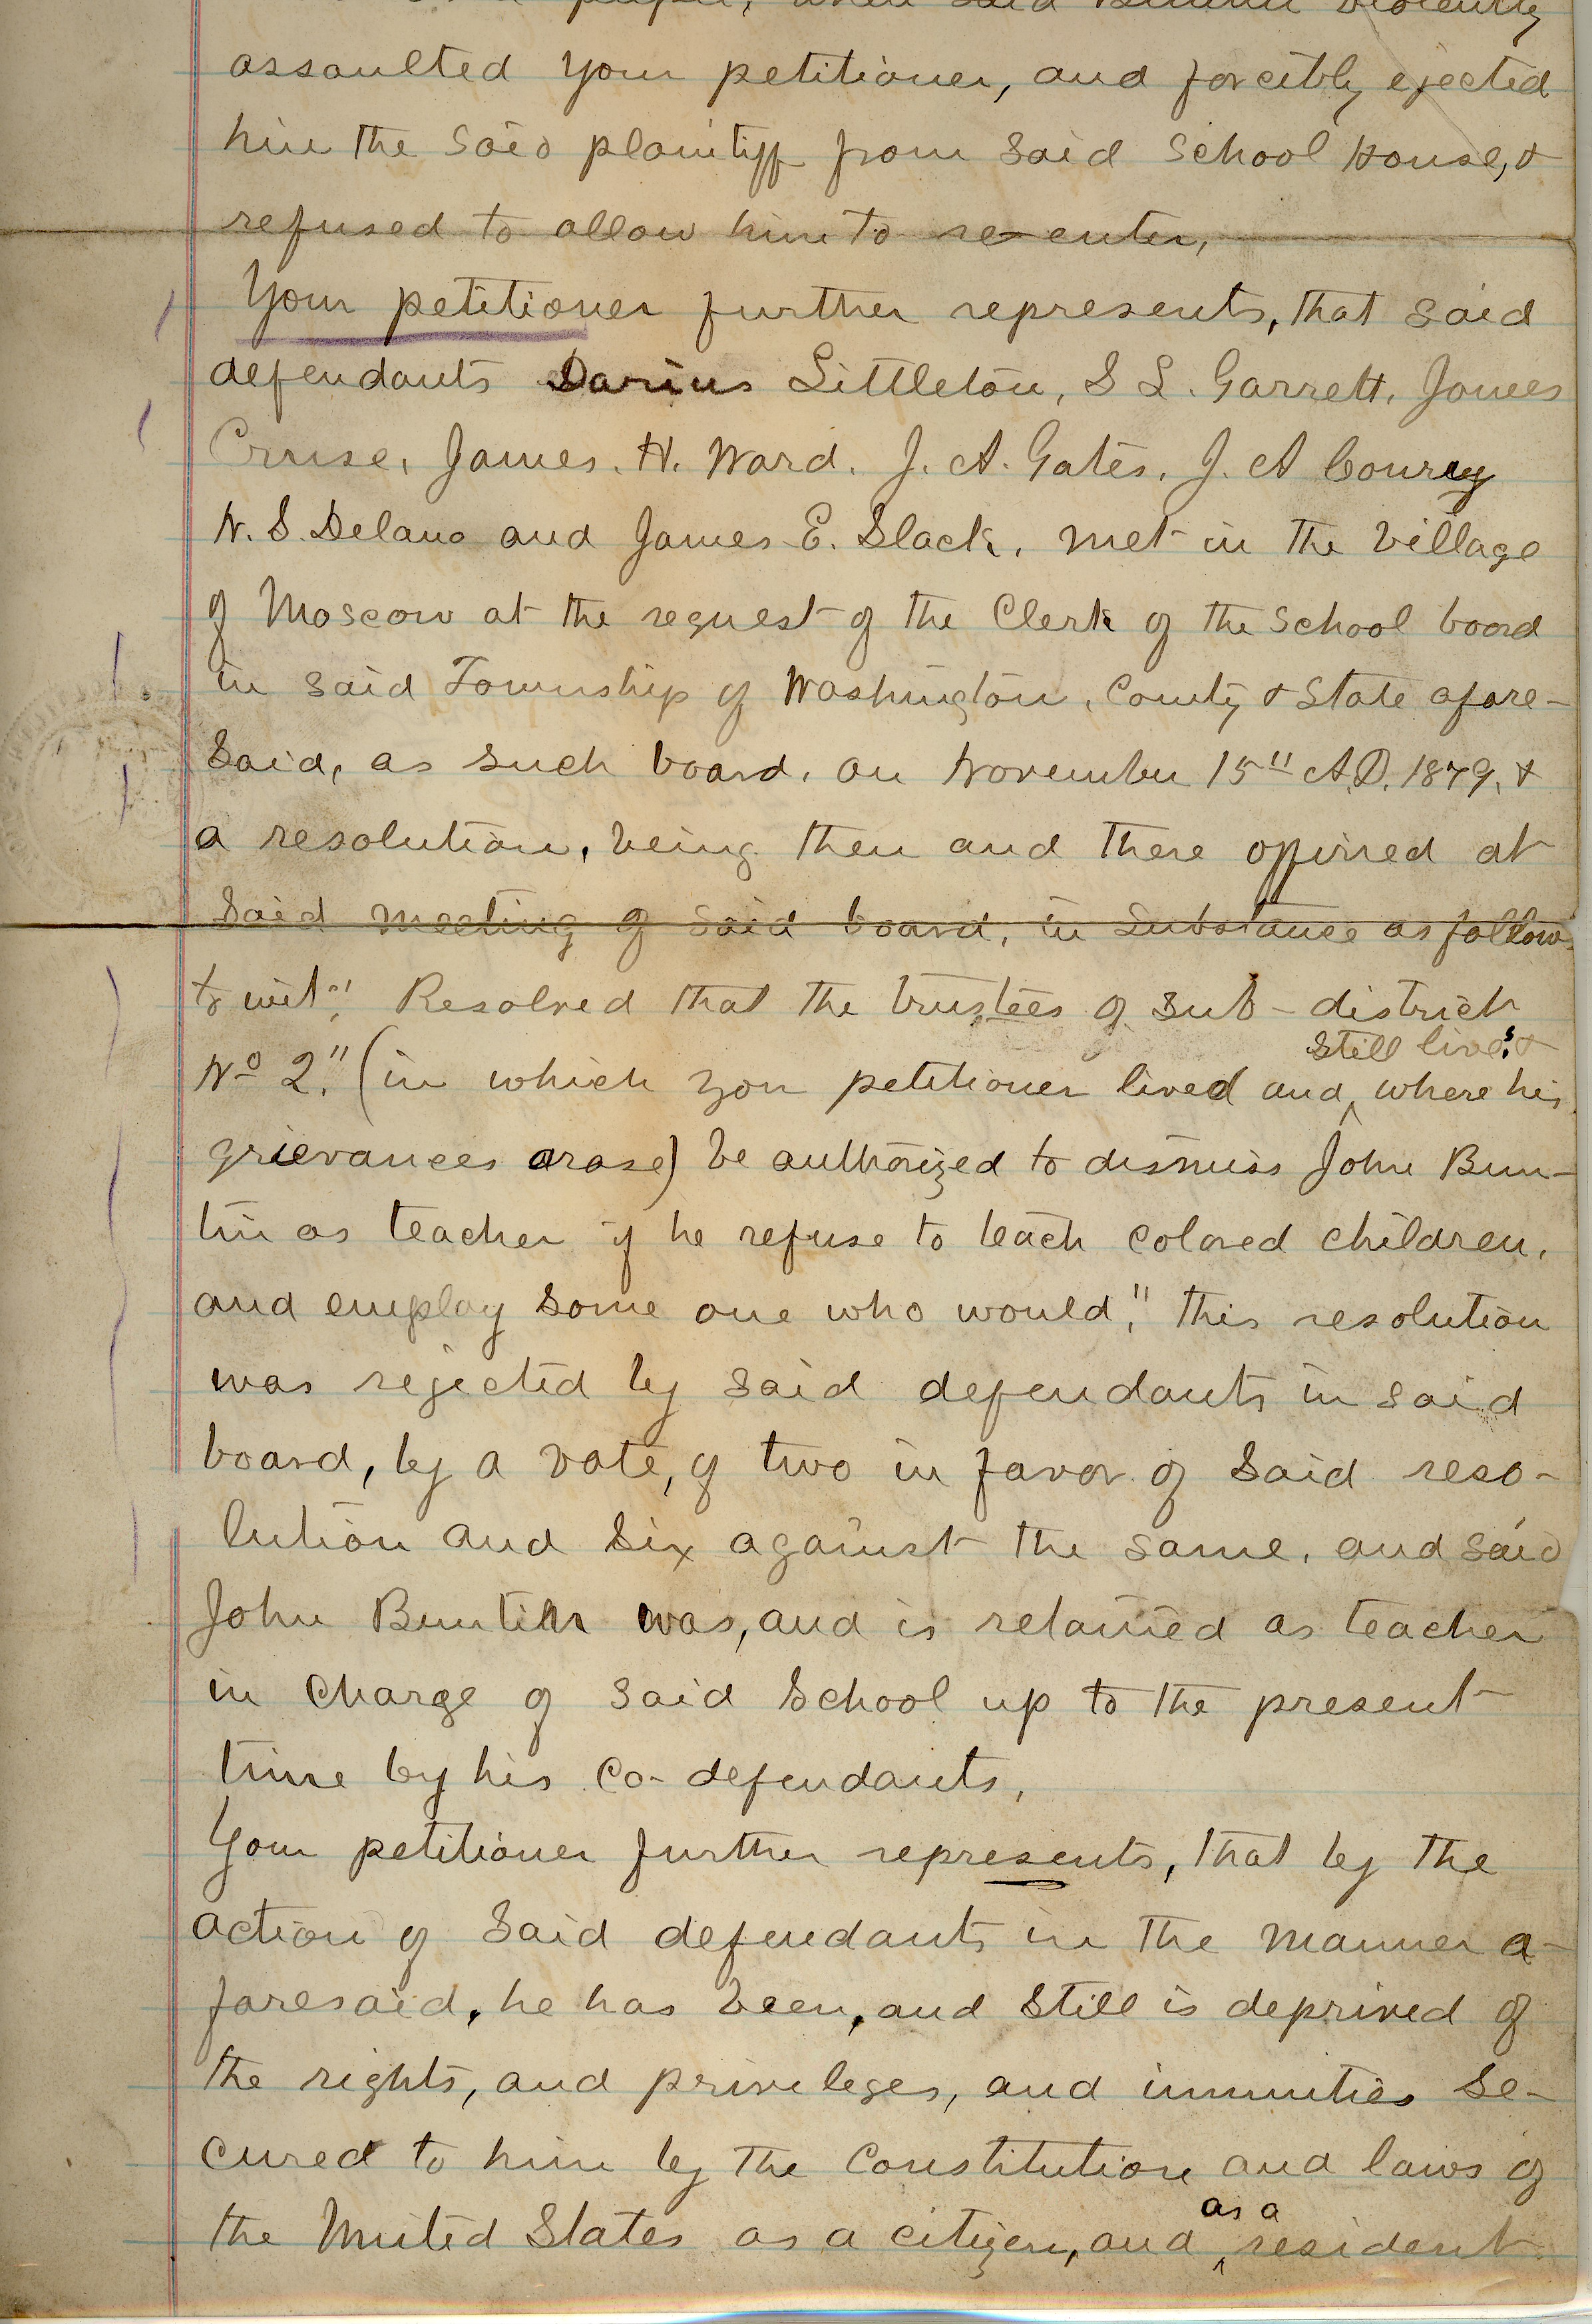 people, when said Buntin violently
assaulted your petitioner, and forcibly ejected
him the said plaintiff from said School House, &
refused to allow him to re-enter,
Your petitioner further represents, that said
defendants Darius Littleton, S L. Garrett, James
Cruise, James. H. Ward. J. A. Gates, J. A Courey
N. S. Delano and James E. Slack, met in the village
of Moscow at the request of the Clerk of the School board
in said Township of Washington, County & State afore-
said, as such board, on November 15" A.D. 1879, &
a resolution, being then and there offired at
said meeting of said board, in substance as follow
to wit", Resolved that the trustees of sub-district
still lives &
No 2." (in which you petitioner lived and, where his
grievances arose) be authorized to dismiss John Bun-
tin as teacher if he refuse to teach colored children,
and employ some one who would", this resolution
was rejected by said defendants in said
board, by a vote, of two in favor of said reso-
lution and six against the same, and said
John Buntin was, and is retained as teacher
in charge of said School up to the present
time by his co-defendants,
Your petitioner further represents, that by the
action of said defendants in the manner a-
foresaid, he has been, and still is deprived of
the rights, and privileges, and immunities se-
cured to him by the Constitution and laws of
as a
the United States as a citizen, and resident